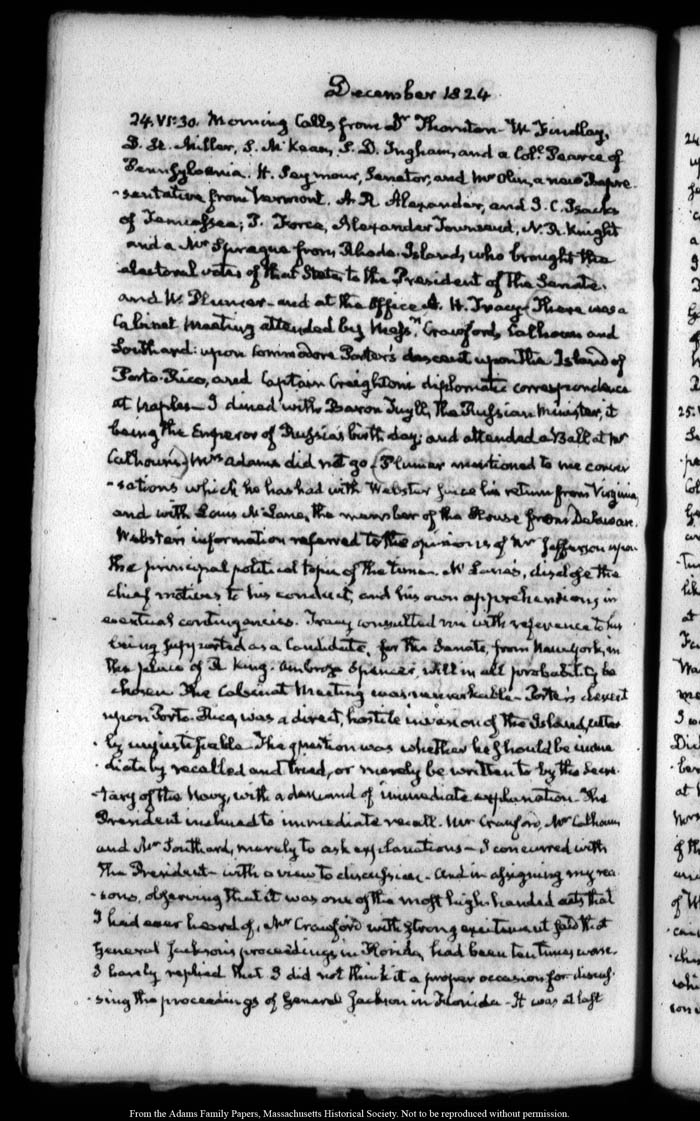 December 1824
24. VI:30. Morning Calls from Dr Thornton - W. Findlay,
D. H. Miller, S. McKean, S. D. Ingham, and a Coll. Pearce of
Pennsylvania. H. Seymour, Senator, and Mr Olin, a new Repre-
-sentative from Vermont. A. R. Alexander, and J. C. Isacks
of Tennessee; P. Force, Alexander Townsend, N. R. Knight
and a Mr Sprague from Rhode-Island, who brought the
electoral votes of that State to the President of the Senate.
and W. Plumer - and at the Office A. H. Tracy - There was a
Cabinet Meeting attended by Messrs Crawford, Calhoun and
Southard: upon Commodore Porter's descent upon the Island of
Porto-Rico, and Captain Creighton's diplomatic correspondence
at Naples - I dined with Baron Tuyll, the Russian Minister, it
being the Emperor of Russia's birth day; and attended a Ball at Mr
Calhoun's, Mrs Adams did not go. Plumer mentioned to me conver
-sations which he has had with Webster since his return from Virginia,
and with Louis McLane, the member of the House from Delaware.
Webster's information referred to the opinions of Mr Jefferson upon
the principal political topic of the time. McLane's, disclose the
chief motives to his conduct, and his own apprehensions, in
eventual contingencies. Tracy consulted me with reference to his
being supported as a Candidate, for the Senate, from New-York, in
the place of R. King. Ambrose Spencer, will in all probability be
chosen. The Cabinet Meeting was remarkable - Porter's descent
upon Porto-Rico, was a direct, hostile invasion of the Island, utter
-ly unjustifiable - The question was whether he should be imme
-diately recalled and tried, or merely be written to by the Secre-
-tary of the Navy, with a demand of immediate explanation. The
President inclined to immediate recall. Mr Crawford, Mr Calhoun
and Mr Southard, merely to ask explanations - I concurred with
the President - with a view to discussion - And in assigning my rea
-sons, observing that it was one of the most high-handed acts that
I had ever heard of, Mr Crawford with strong excitement said that
General Jackson's proceedings in Florida, had been ten times worse.
I barely replied that I did not think it a proper occasion for discus-
-sing the proceedings of General Jackson in Florida - It was at last
From the Adams Family Papers, Massachusetts Historical Society. Not to be reproduced without permission.